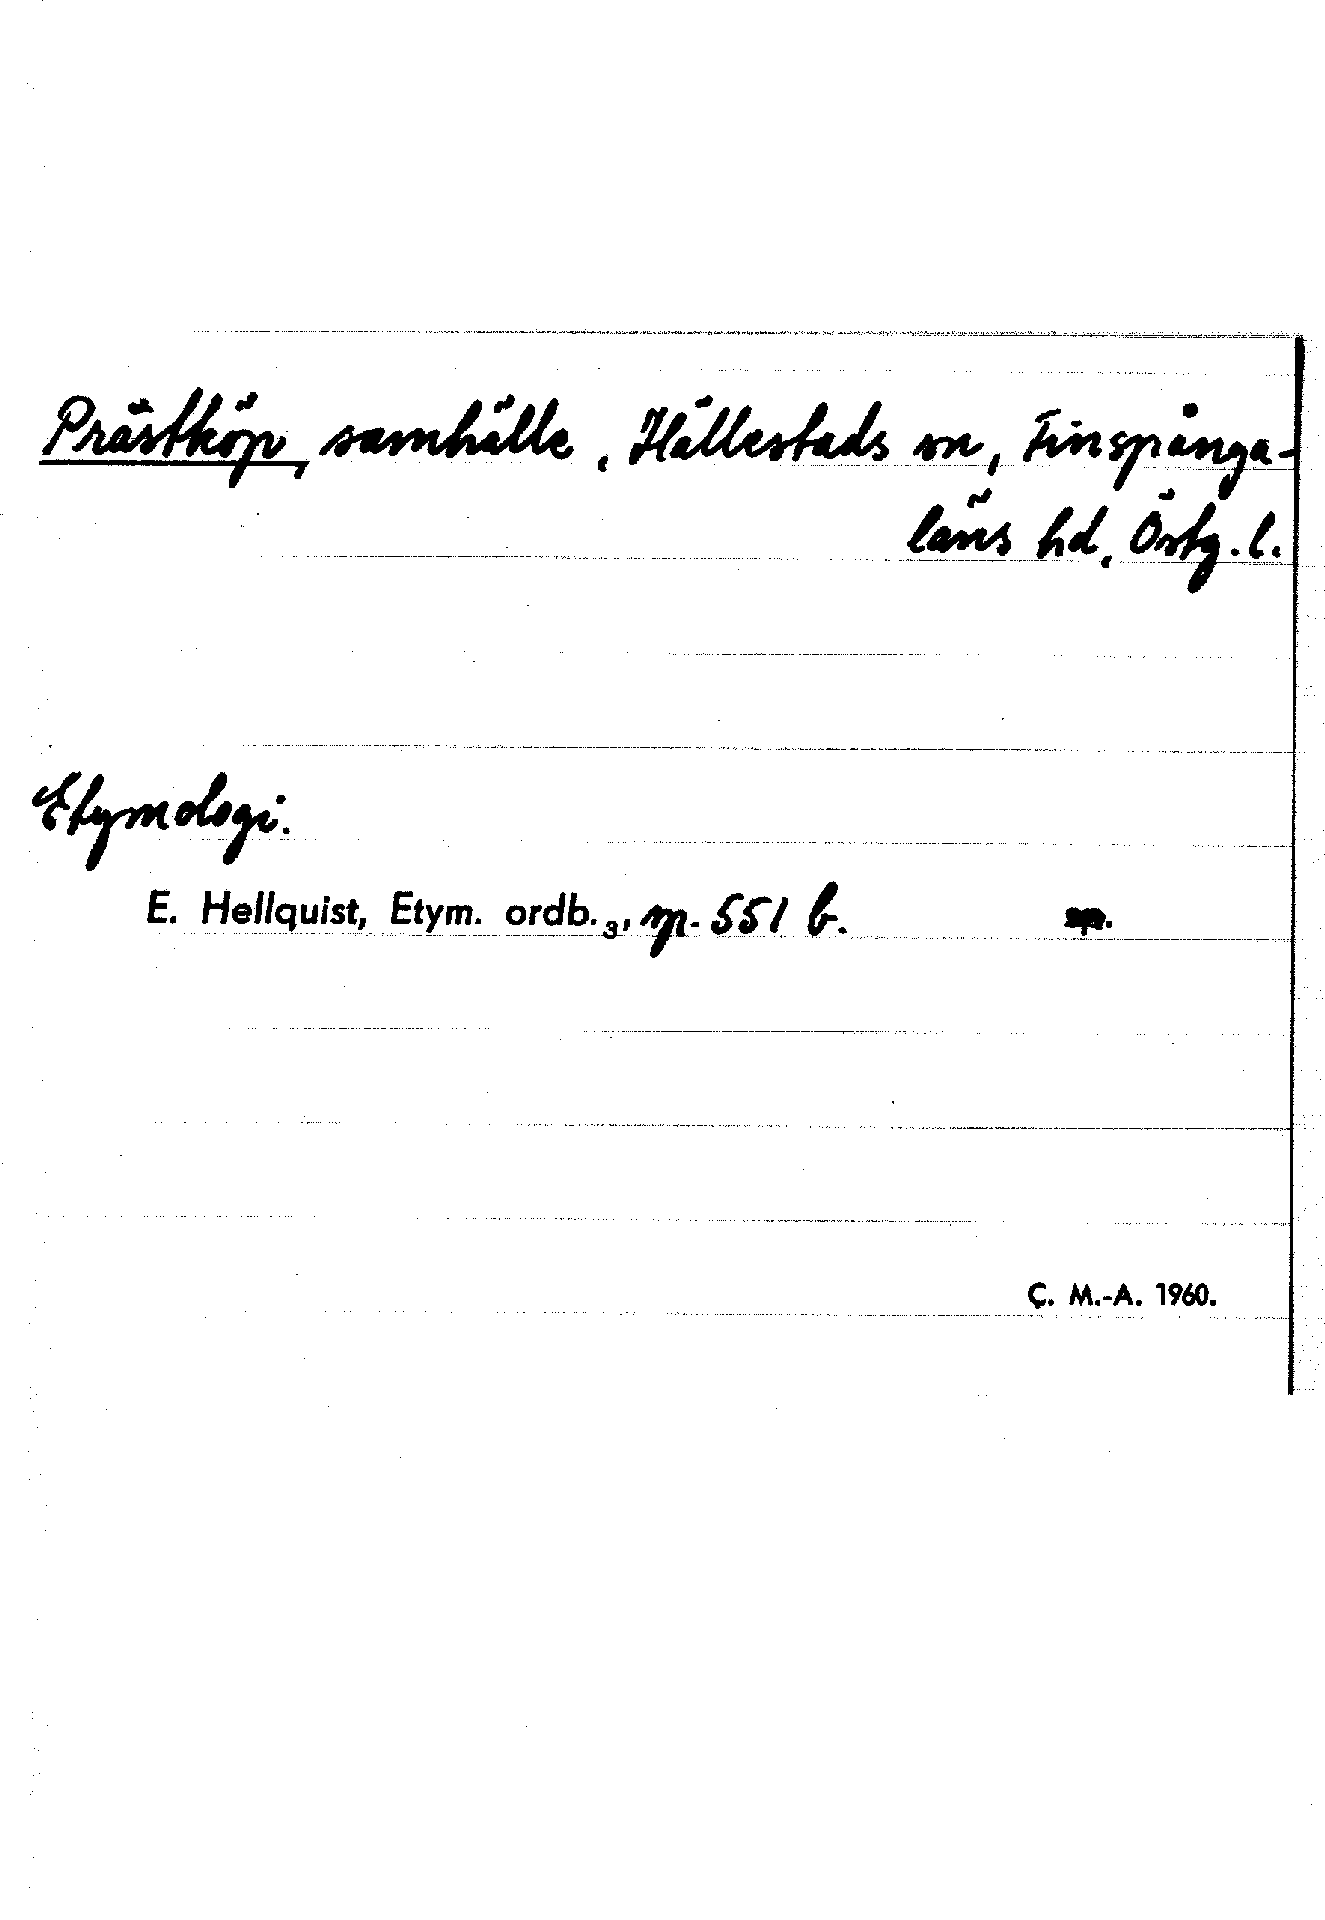 Prästköp, samhälle, Hällestads sn, Finspånga-
läns hd, Östg. l.
Etymologi.
E. Hellquist, Etym. ordb.₃, sp. 551 b.
C. M.-A. 1960.